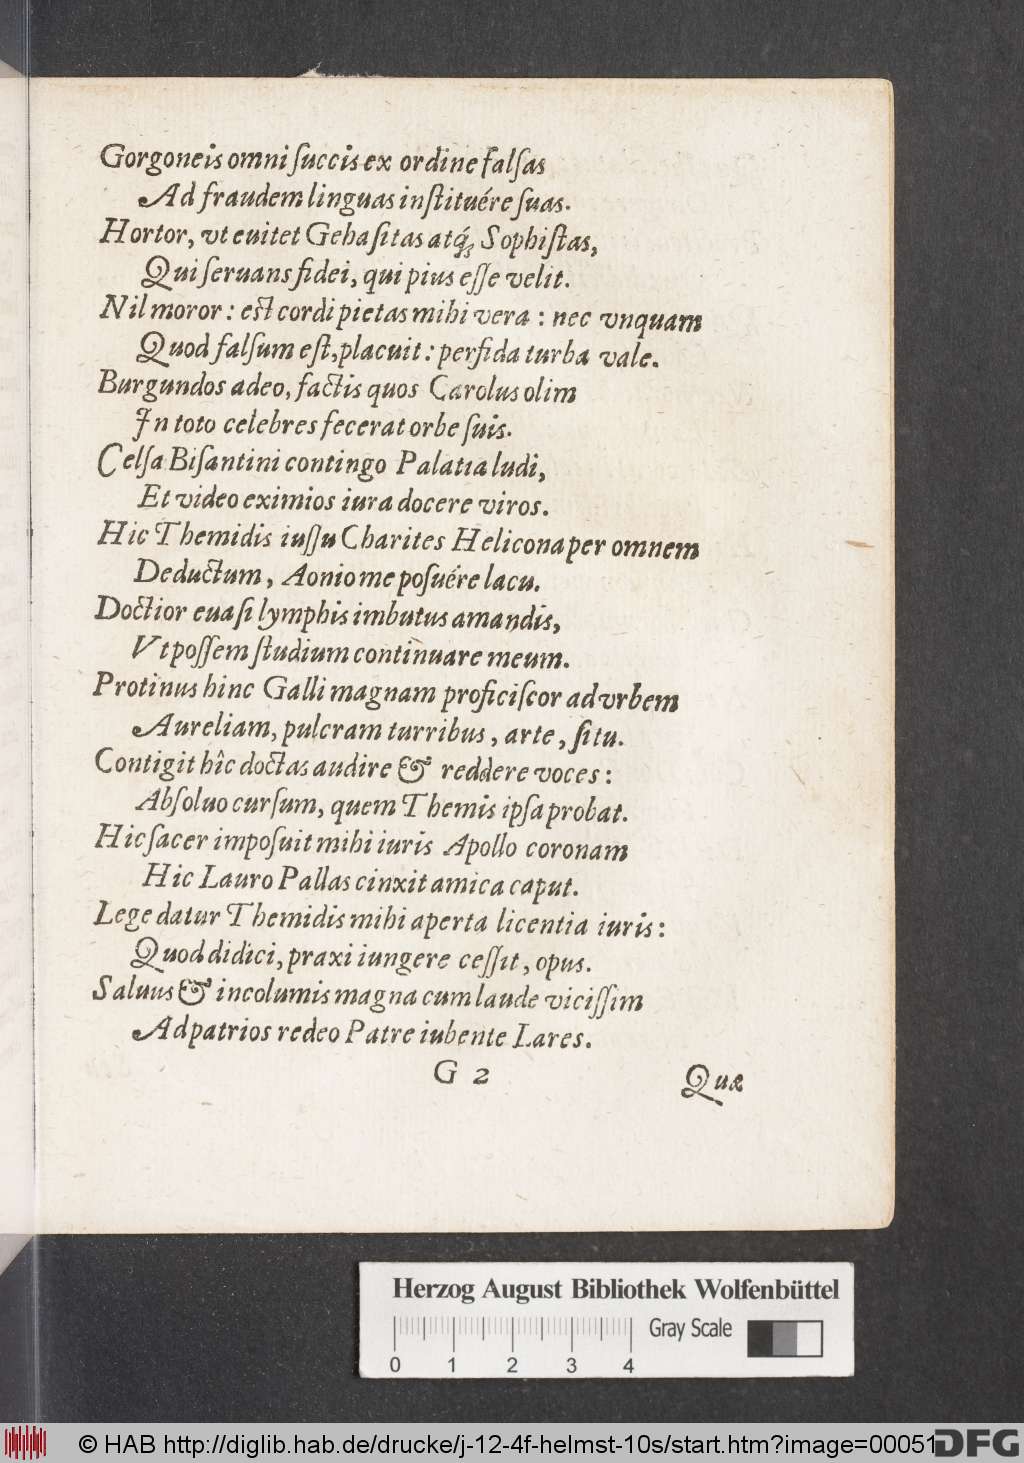 Gorgoneis omni ſuccis ex ordine falſas
Ad fraudem linguas inſtituére ſuas.
Hortor, vt euitet Gehaſitas atq́ꝫ Sophiſtas,
Qui ſeruans fidei, qui pius eſſe velit.
Nil moror: eſt cordi pietas mihi vera: nec vnquam
Quod falſum eſt, placuit: perfida turba vale.
Burgundos adeo, factis quos Carolus olim
In toto celebres fecerat orbe ſuis.
Celſa Biſantini contingo Palatia ludi,
Et video eximios iura docere viros.
Hic Themidis iuſſu Charites Helicona per omnem
Deductum, Aonio me poſuére lacu.
Doctior euaſi lymphis imbutus amandis,
Vt poſſem ſtudium continuare meum.
Protinus hinc Galli magnam proficiſcor ad vrbem
Aureliam, pulcram turribus, arte, ſitu.
Contigit hîc doctas audire & reddere voces:
Abſoluo curſum, quem Themis ipſa probat.
Hic ſacer impoſuit mihi iuris Apollo coronam
Hic Lauro Pallas cinxit amica caput.
Lege datur Themidis mihi aperta licentia iuris:
Quod didici, praxi iungere ceſſit, opus.
Saluus & incolumis magna cum laude viciſſim
Ad patrios redeo Patre iubente Lares.
G 2
Quæ
Herzog August Bibliothek Wolfenbüttel
Gray Scale
0 1 2 3 4
© HAB http://diglib.hab.de/drucke/j-12-4f-helmst-10s/start.htm?image=00051
DFG